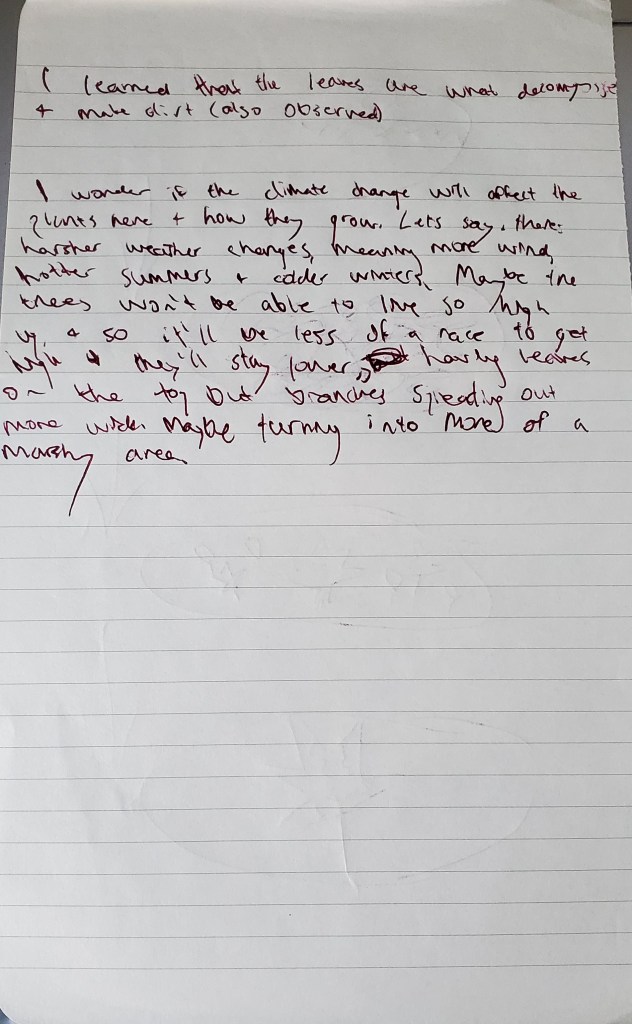 I learned that the leaves are what decompose
+ make dirt (also observed)
I wonder if the climate change will affect the
plants here + how they grow. Lets say, there:
harsher weather changes, meaning more wind,
hotter summers + colder winters, Maybe the
trees won't be able to live so high
up, + so it'll be less of a race to get
high + they'll stay lower, having leaves
on the top but branches spreading out
more wide. Maybe turning into more of a
marshy area